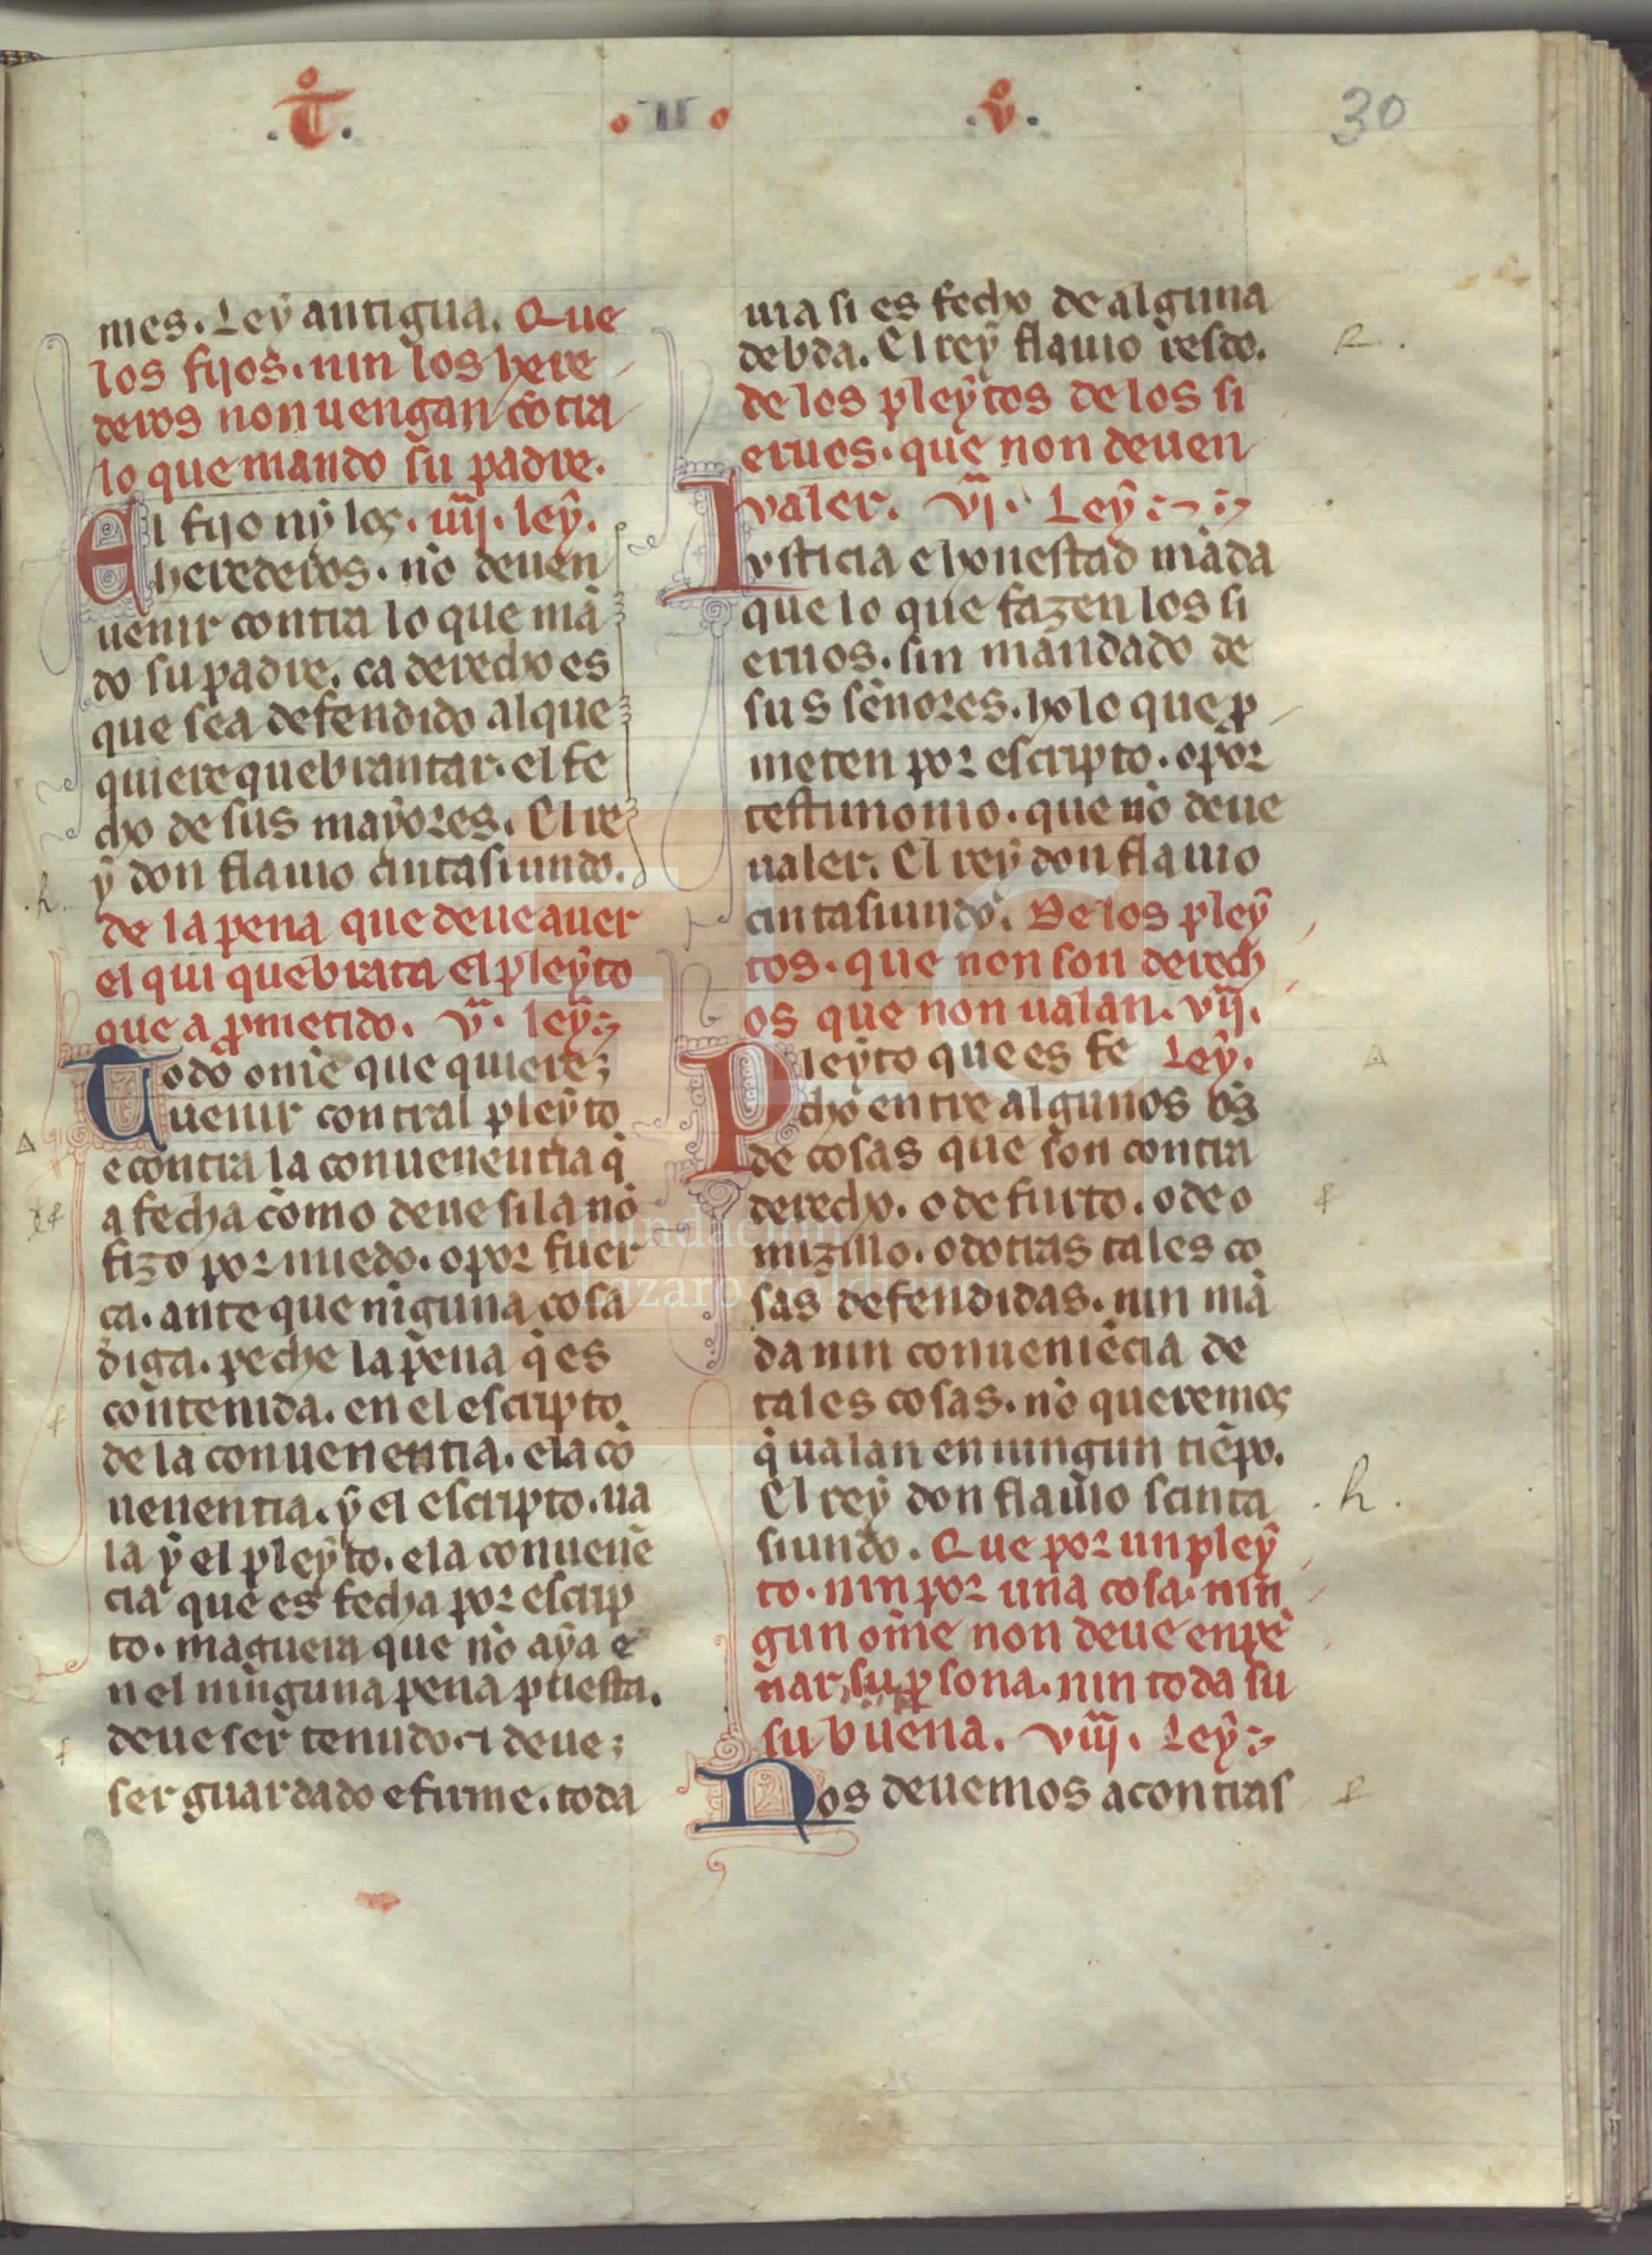 .T. .II. .v. 30
mes. Ley antigua. Que
los fijos. nin los here
deros non uengan cōtra
lo que mando su padre.
El fijo nȳ los. iiij. leȳ.
herederos. nō deuen
uenir contra lo que mā
do su padre. ca derecho es
que sea defendido al que
quiere quebrantar. el fe
cho de sus mayores. El re
ẏ don flauio cintasiundo.
.h.
de la pena que deue auer
el qui quebrāta el pleẏto
que a ꝓmetido. v. leẏ
Todo ome que quiere;
uenir contral pleẏto
e contra la conuenentia q̄
a fecha como deue si la nō
fizo por miedo. o por fuer
ca. ante que niguna cosa
diga. peche la pena q̄ es
contenida. en el escripto
de la conuenentia. e la cō
uenentia. ẏ el escripto. ua
la ẏ el pleẏto. e la conuenē
cia que es fecha por escrip
to. maguera que nō aẏa e
n el ninguna pena puesta.
deue ser tenudo. ⁊ deue;
ser guardado e firme. toda
uia si es fecho de alguna
debda. El reẏ flauio resdo.
R.
de los pleẏtos de los si
eruos. que non deuen
valer. vj. Leẏ
Ivsticia e honestad māda
que lo que fazen los si
eruos. sin mandado de
sus sēnores. ho lo que ꝓ
meten por escripto. o por
testimonio. que nō deue
ualer. El reẏ don flauio
cintasiundo. De los pleẏ
tos. que non son derech
os que non ualan. vij.
Pleẏto que es fe Leẏ.
cho entre algunos oms
de cosas que son contra
derecho. o de furto. o de o
mizillo. o dotras tales co
sas defendidas. nin mā
da nin conueniēcia de
tales cosas. nō queremos
q̄ ualan en ningun tiēpo.
El reẏ don flauio scinta
.h.
siundo. Que por un pleẏ
to. nin por una cosa. nin
gun ome non deue enpe
ñar su ꝑsona. nin toda su
su buena. viij. Leẏ
Nos deuemos a contras
Fundación
Lázaro Galdiano